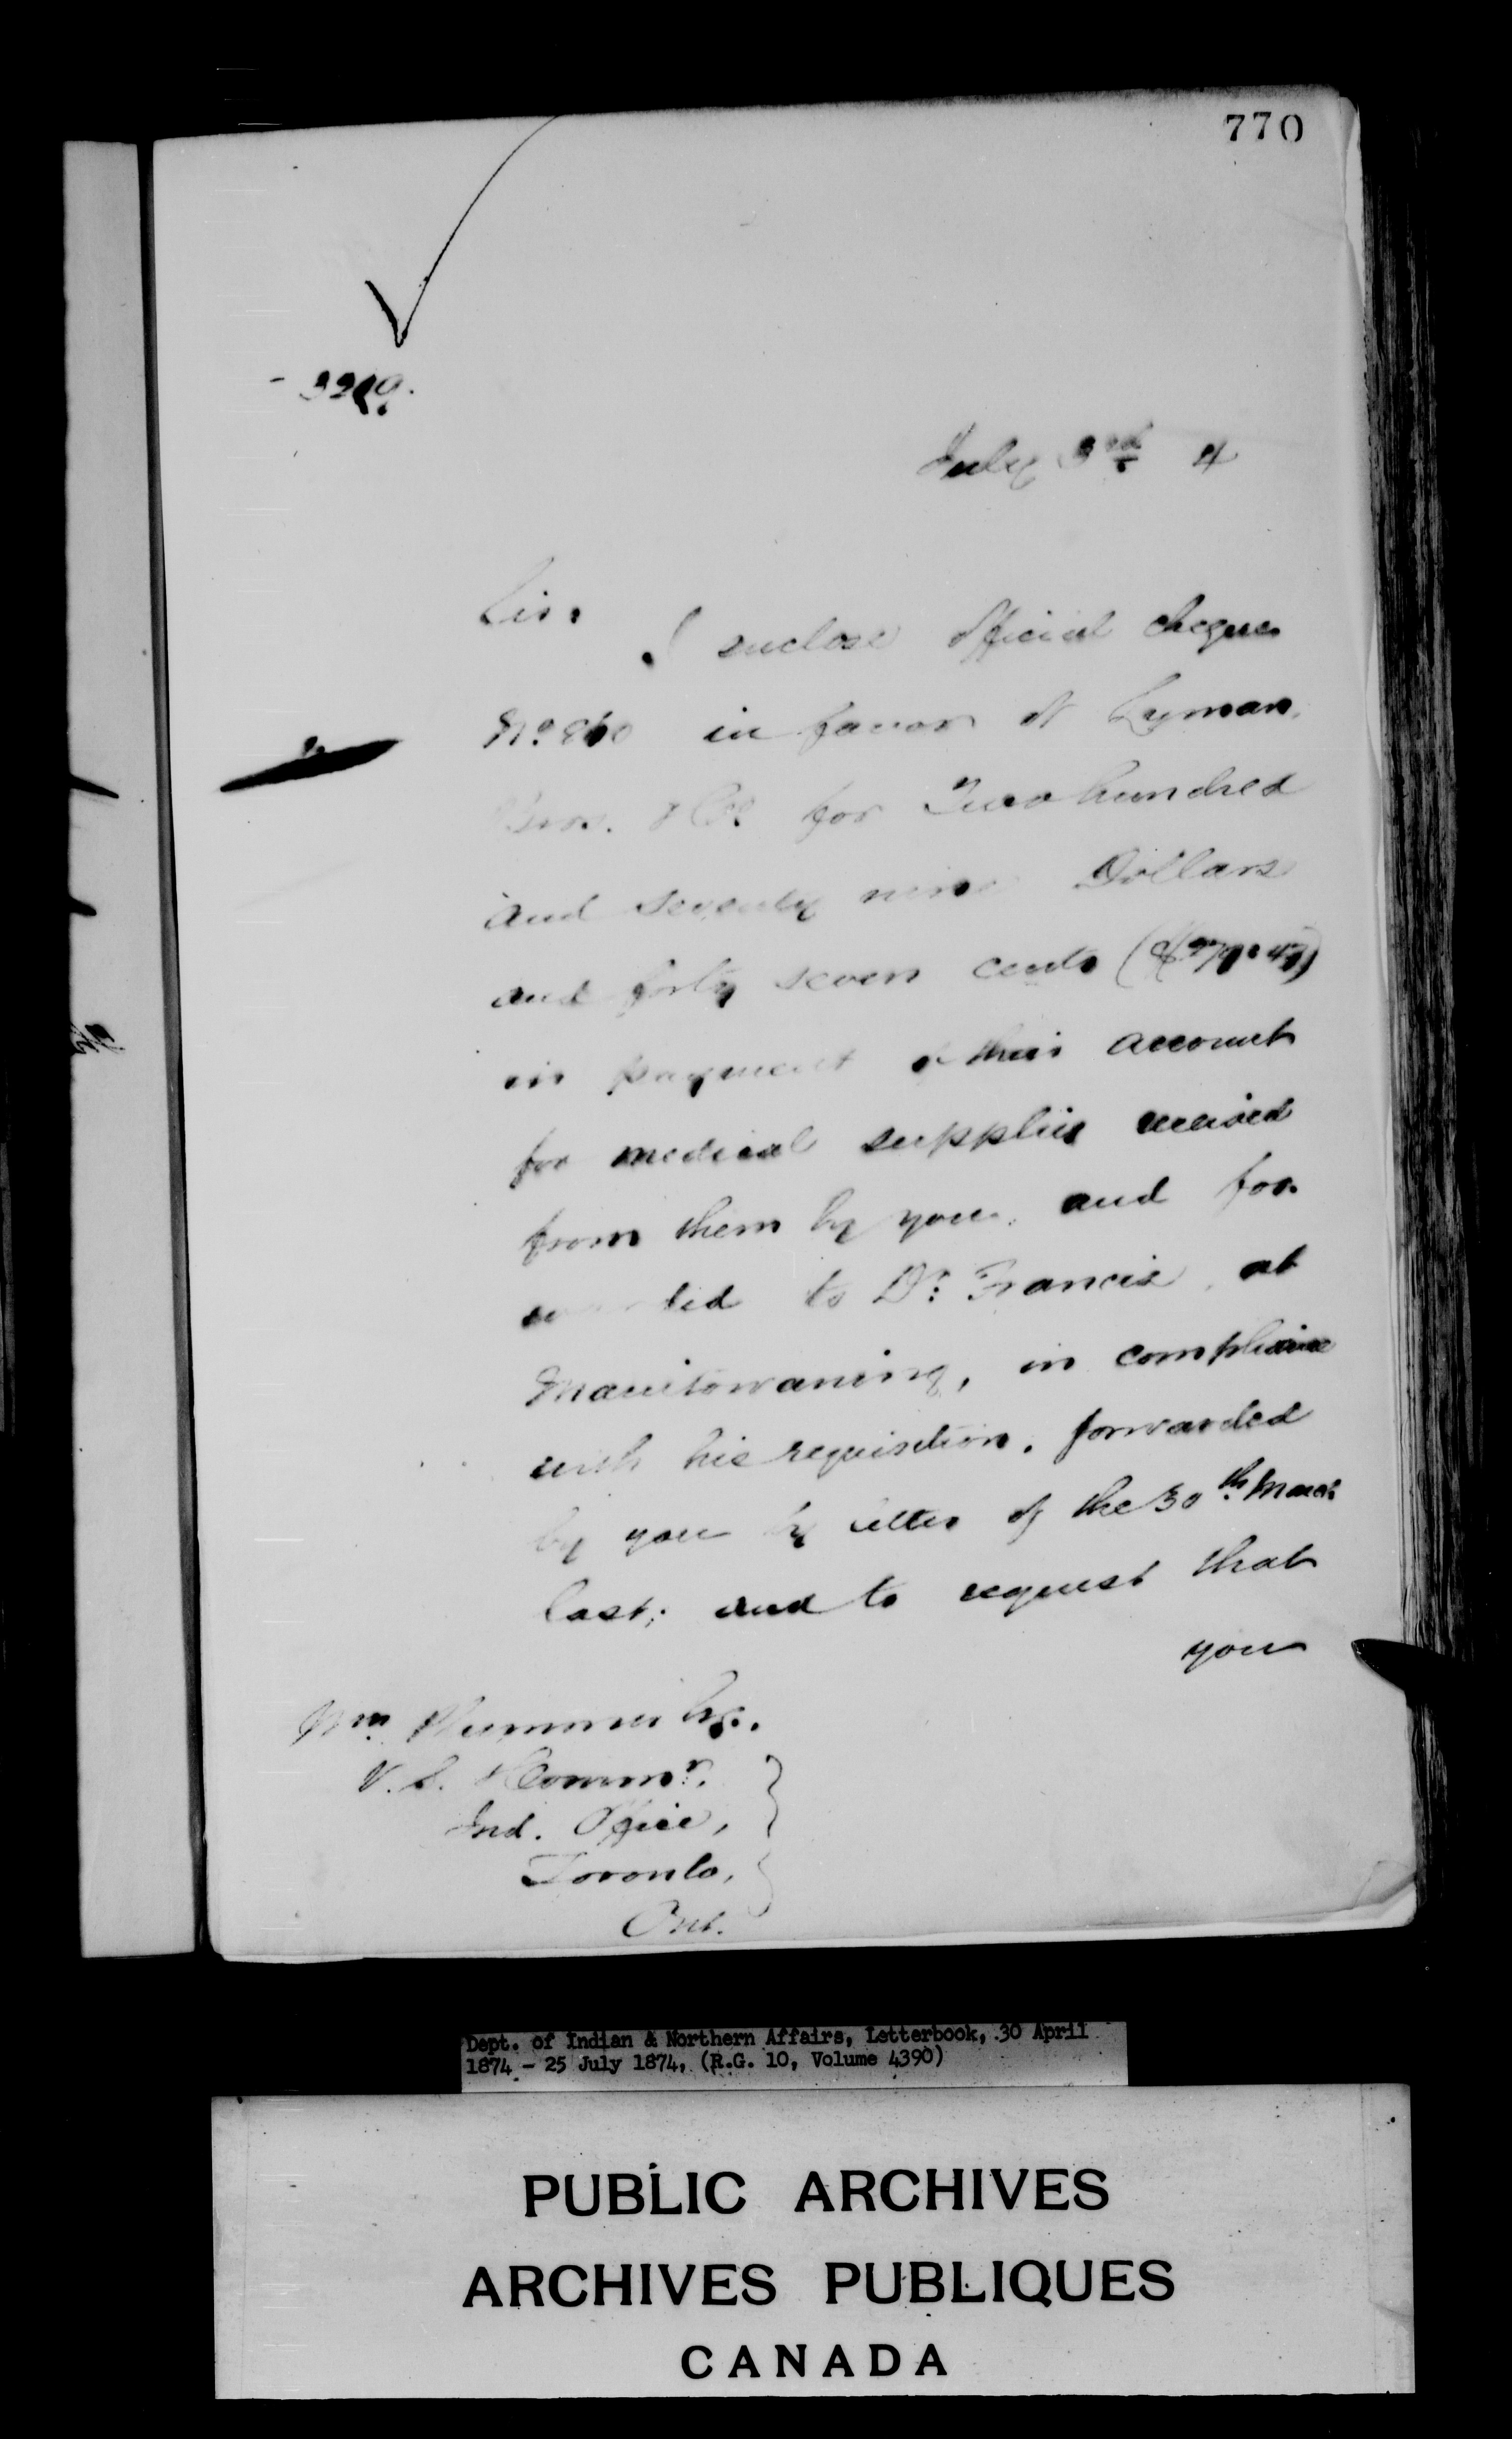 770
July 3rd 4
Sir,
I enclose official cheque
No. in favor of Lyman
Bros. & Co. for Two hundred
and seventy nine Dollars
and forty seven cents ($279.47)
in payment of their account
for medical supplies received
from them by you, and for-
warded to Dr. Francis, at
Manitowaning, in compliance
with his requisition, forwarded
by you by letter of the 30th March
last; and to request that
you
Wm Plummer Esq.
V.S. & Commr.
Ind. Office,
Toronto,
Ont.
Dept. of Indian & Northern Affairs, Letterbook, 30 April
1874 - 25 July 1874, (R.G. 10, Volume 4390)
PUBLIC ARCHIVES
ARCHIVES PUBLIQUES
CANADA